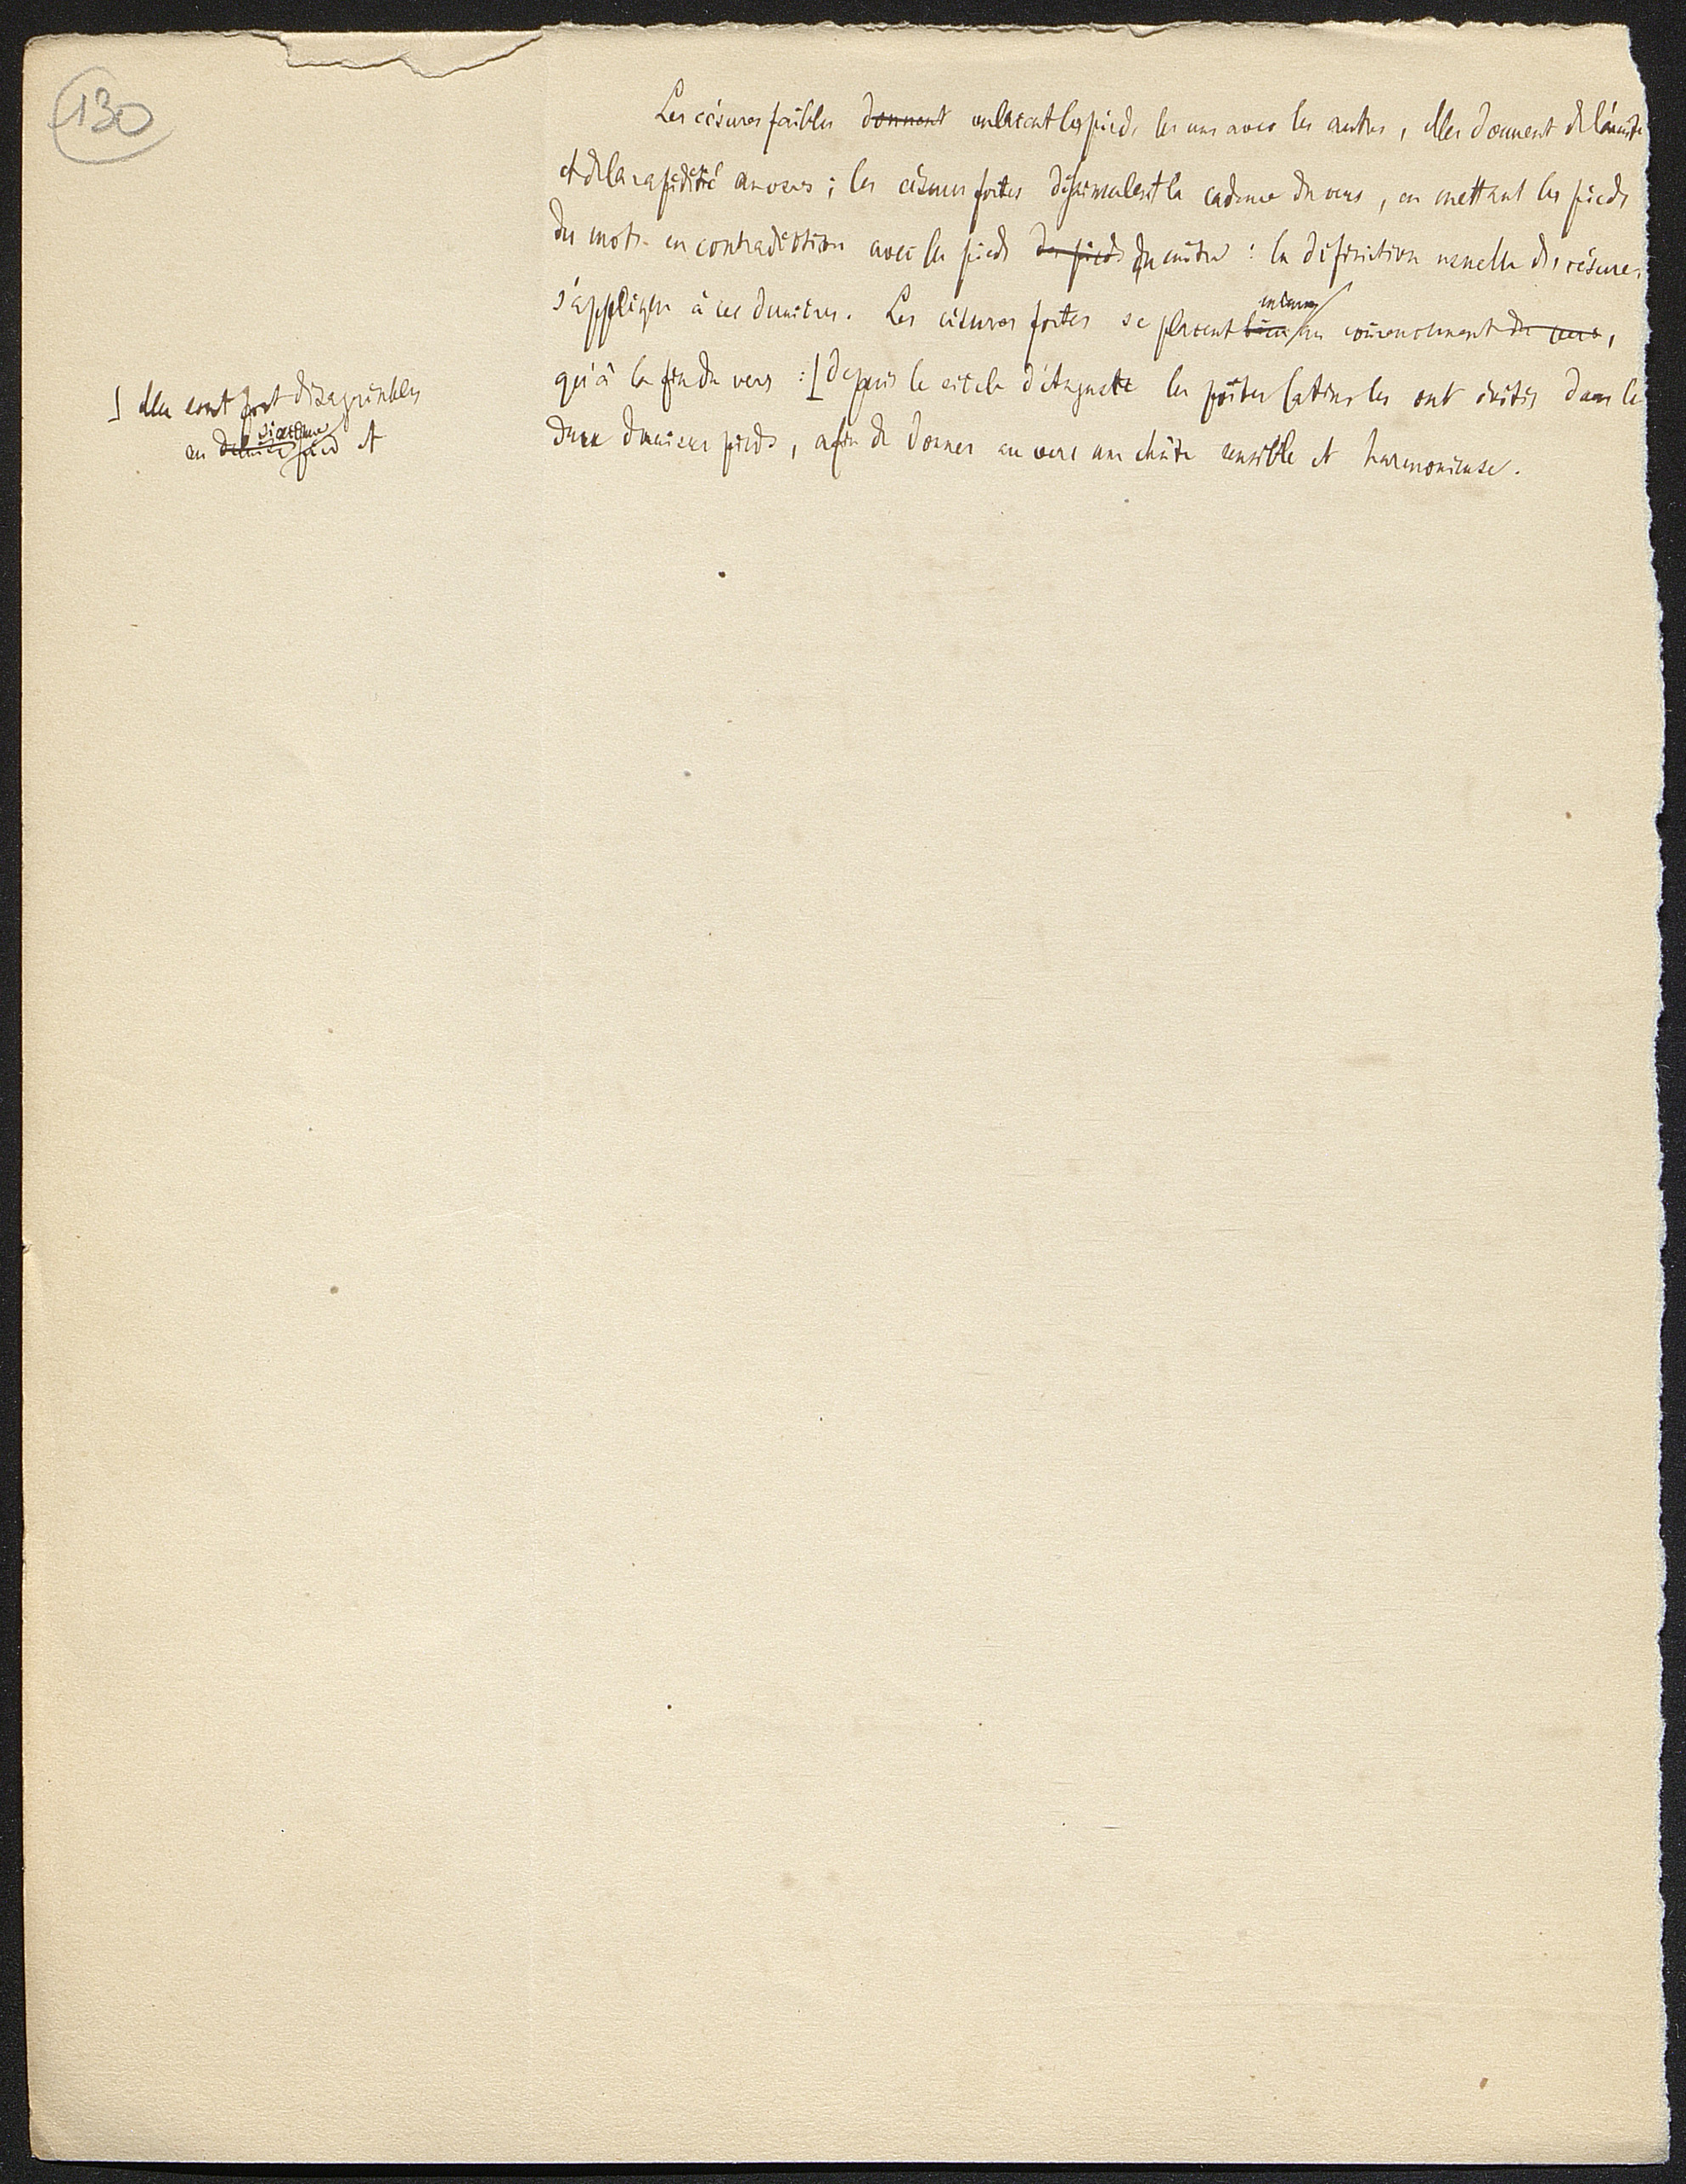 130
Les césures faibles donnent enlacent les pieds les uns avec les autres, elles donnent de l'unité
et de la rapidité au vers ; les césures fortes dissimulent la cadence du vers, en mettant les pieds
des mots en contradiction avec les pieds des pieds du mètre : la définition usuelle des césures
s'applique à ces dernières. Les césures fortes se placent mieux au commencement du vers,
qu'à la fin du vers : ⌊ depuis le siècle d'Auguste les poètes latins les ont évités dans les
deux derniers pieds, afin de donner au vers une chûte sensible et harmonieuse.
⌋ elles sont fort désagréables
au dernier sixième pied et